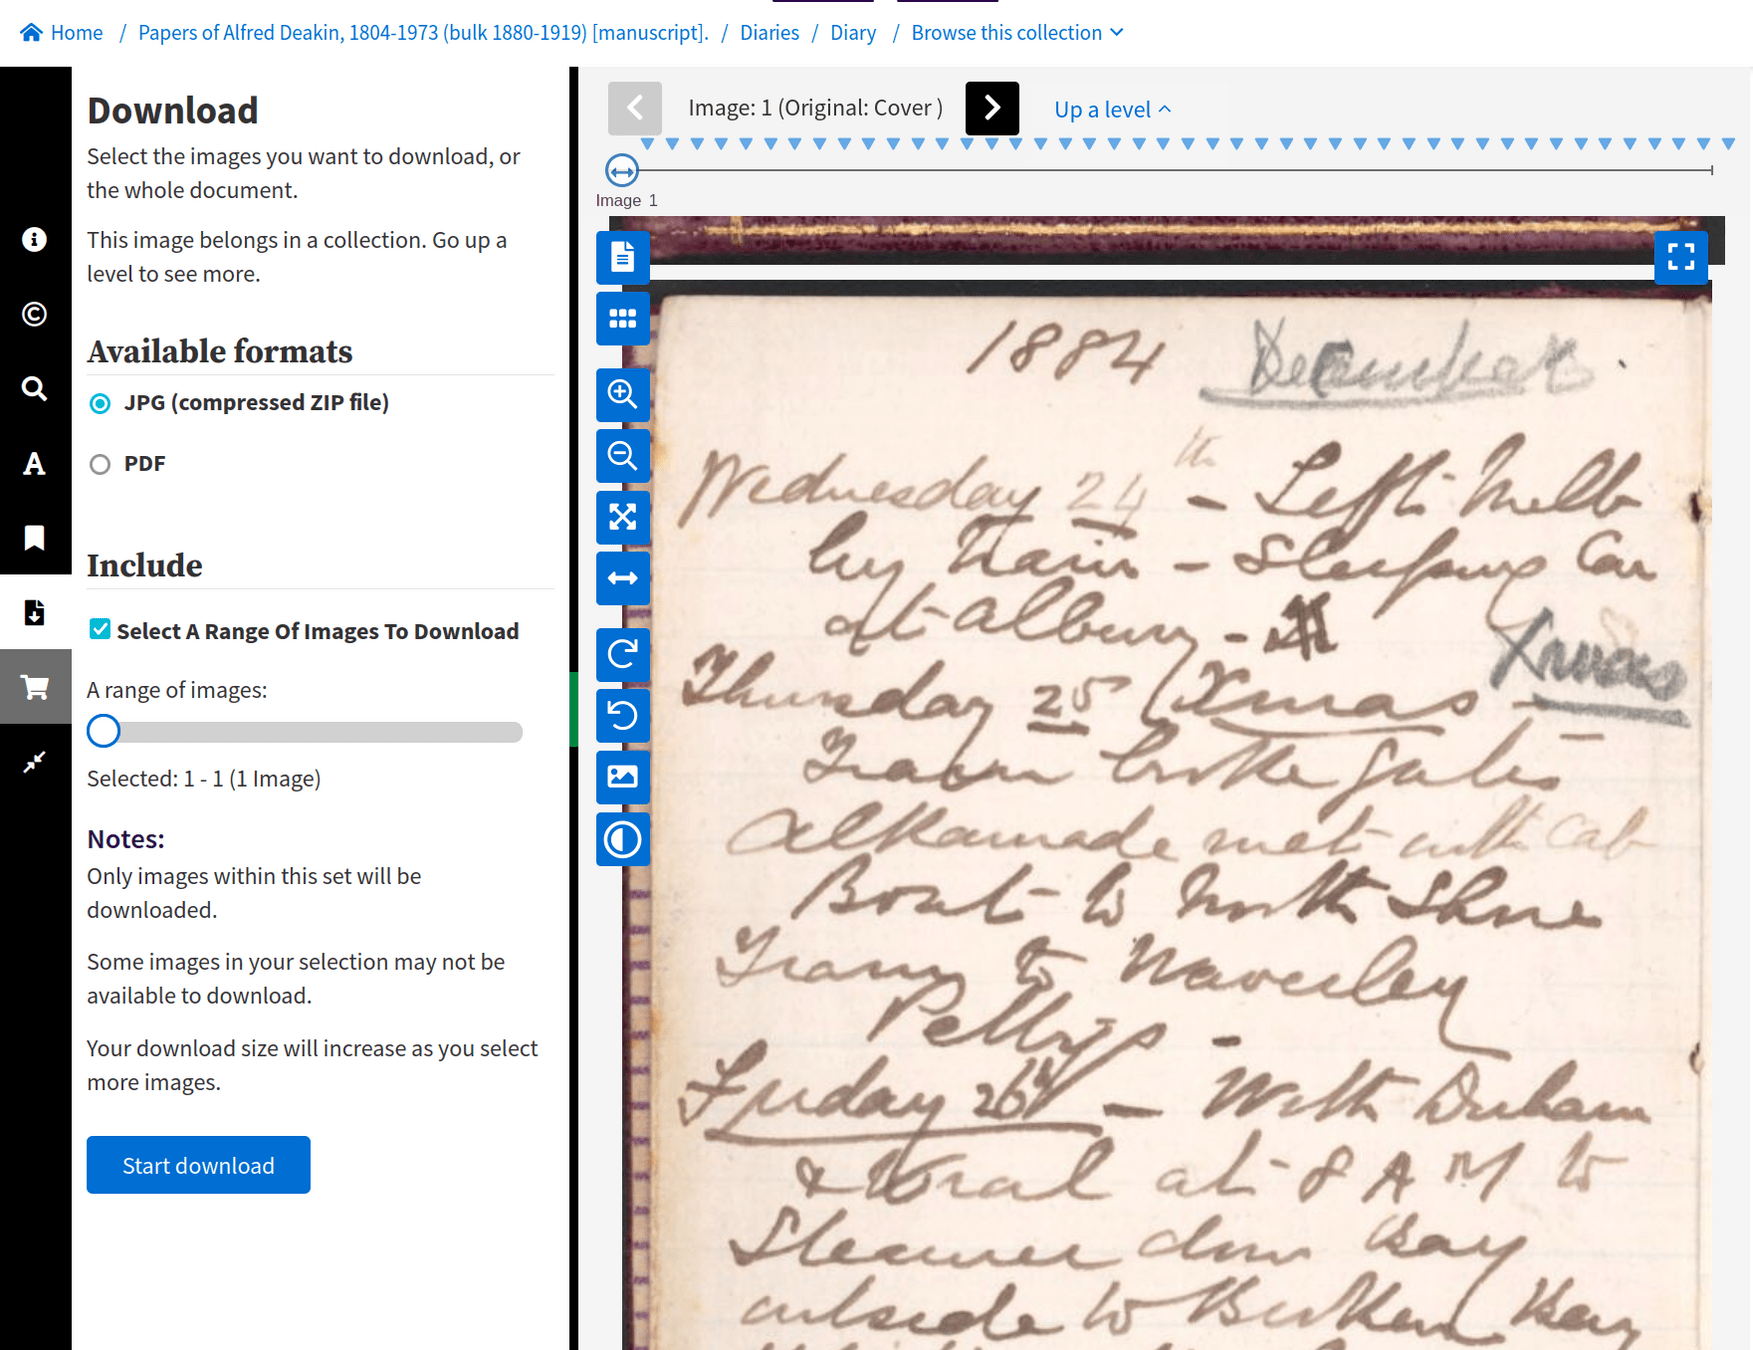 Home / Papers of Alfred Deakin, 1804-1973 (bulk 1880-1919) [manuscript]. / Diaries / Diary / Browse this collection
Download
Select the images you want to download, or
the whole document.
This image belongs in a collection. Go up a
level to see more.
Available formats
JPG (compressed ZIP file)
PDF
Include
Select A Range Of Images To Download
A range of images:
Selected: 1 - 1 (1 Image)
Notes:
Only images within this set will be
downloaded.
Some images in your selection may not be
available to download.
Your download size will increase as you select
more images.
Start download
Image: 1 (Original: Cover )
Up a level
Image 1
1884 December
Wednesday 24th - Left Melb
by train - Sleeping Car
at Albury -
Thursday 25 Xmas - Xmas
Train broke
met with cab
Boat to North Shore
Tram to Waverley
Friday 26th - With Durham
& at 8 A M to
Steamer down Bay
outside to Broken Bay